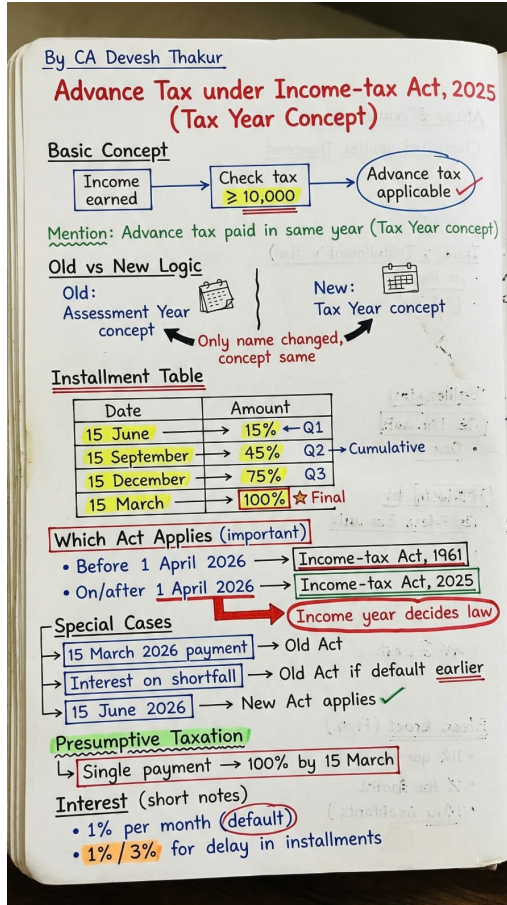 By CA Devesh Thakur
Advance Tax under Income-tax Act, 2025
(Tax Year Concept)
Basic Concept
Income earned → Check tax ≥ 10,000 → Advance tax applicable ✓
Mention: Advance tax paid in same year (Tax Year concept)
Old vs New Logic
Old:
Assessment Year
concept
New:
Tax Year concept
Only name changed,
concept same
Installment Table
Date Amount
15 June → 15% ← Q1
15 September → 45% Q2 → Cumulative
15 December → 75% Q3
15 March → 100% ☆ Final
Which Act Applies (important)
• Before 1 April 2026 → Income-tax Act, 1961
• On/after 1 April 2026 → Income-tax Act, 2025
Income year decides law
Special Cases
15 March 2026 payment → Old Act
Interest on shortfall → Old Act if default earlier
15 June 2026 → New Act applies ✓
Presumptive Taxation
Single payment → 100% by 15 March
Interest (short notes)
• 1% per month (default)
• 1% / 3% for delay in installments